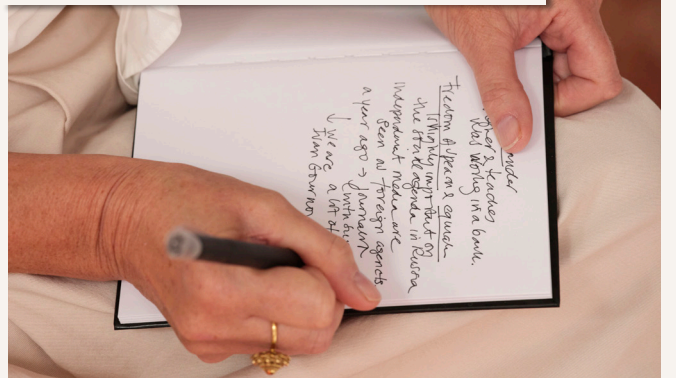 ander
& teaches
was working in a bank.
freedom of speech & opinion
is highly important on
the state agenda in Russia
Independent media are
seen as foreign agents.
a year ago → journalism
↓ We are a lot of
than Governo